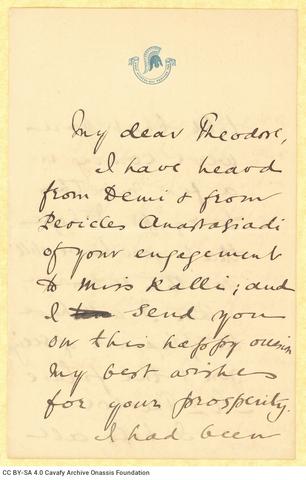 My dear Theodore,
I have heard
from Demi & from
Pericles Anastasiadi
of your engagement
to Miss Ralli; and
I send you
on this happy
my best wishes
for your prosperity.
I had been
CC BY-SA 4.0 Cavafy Archive Onassis Foundation